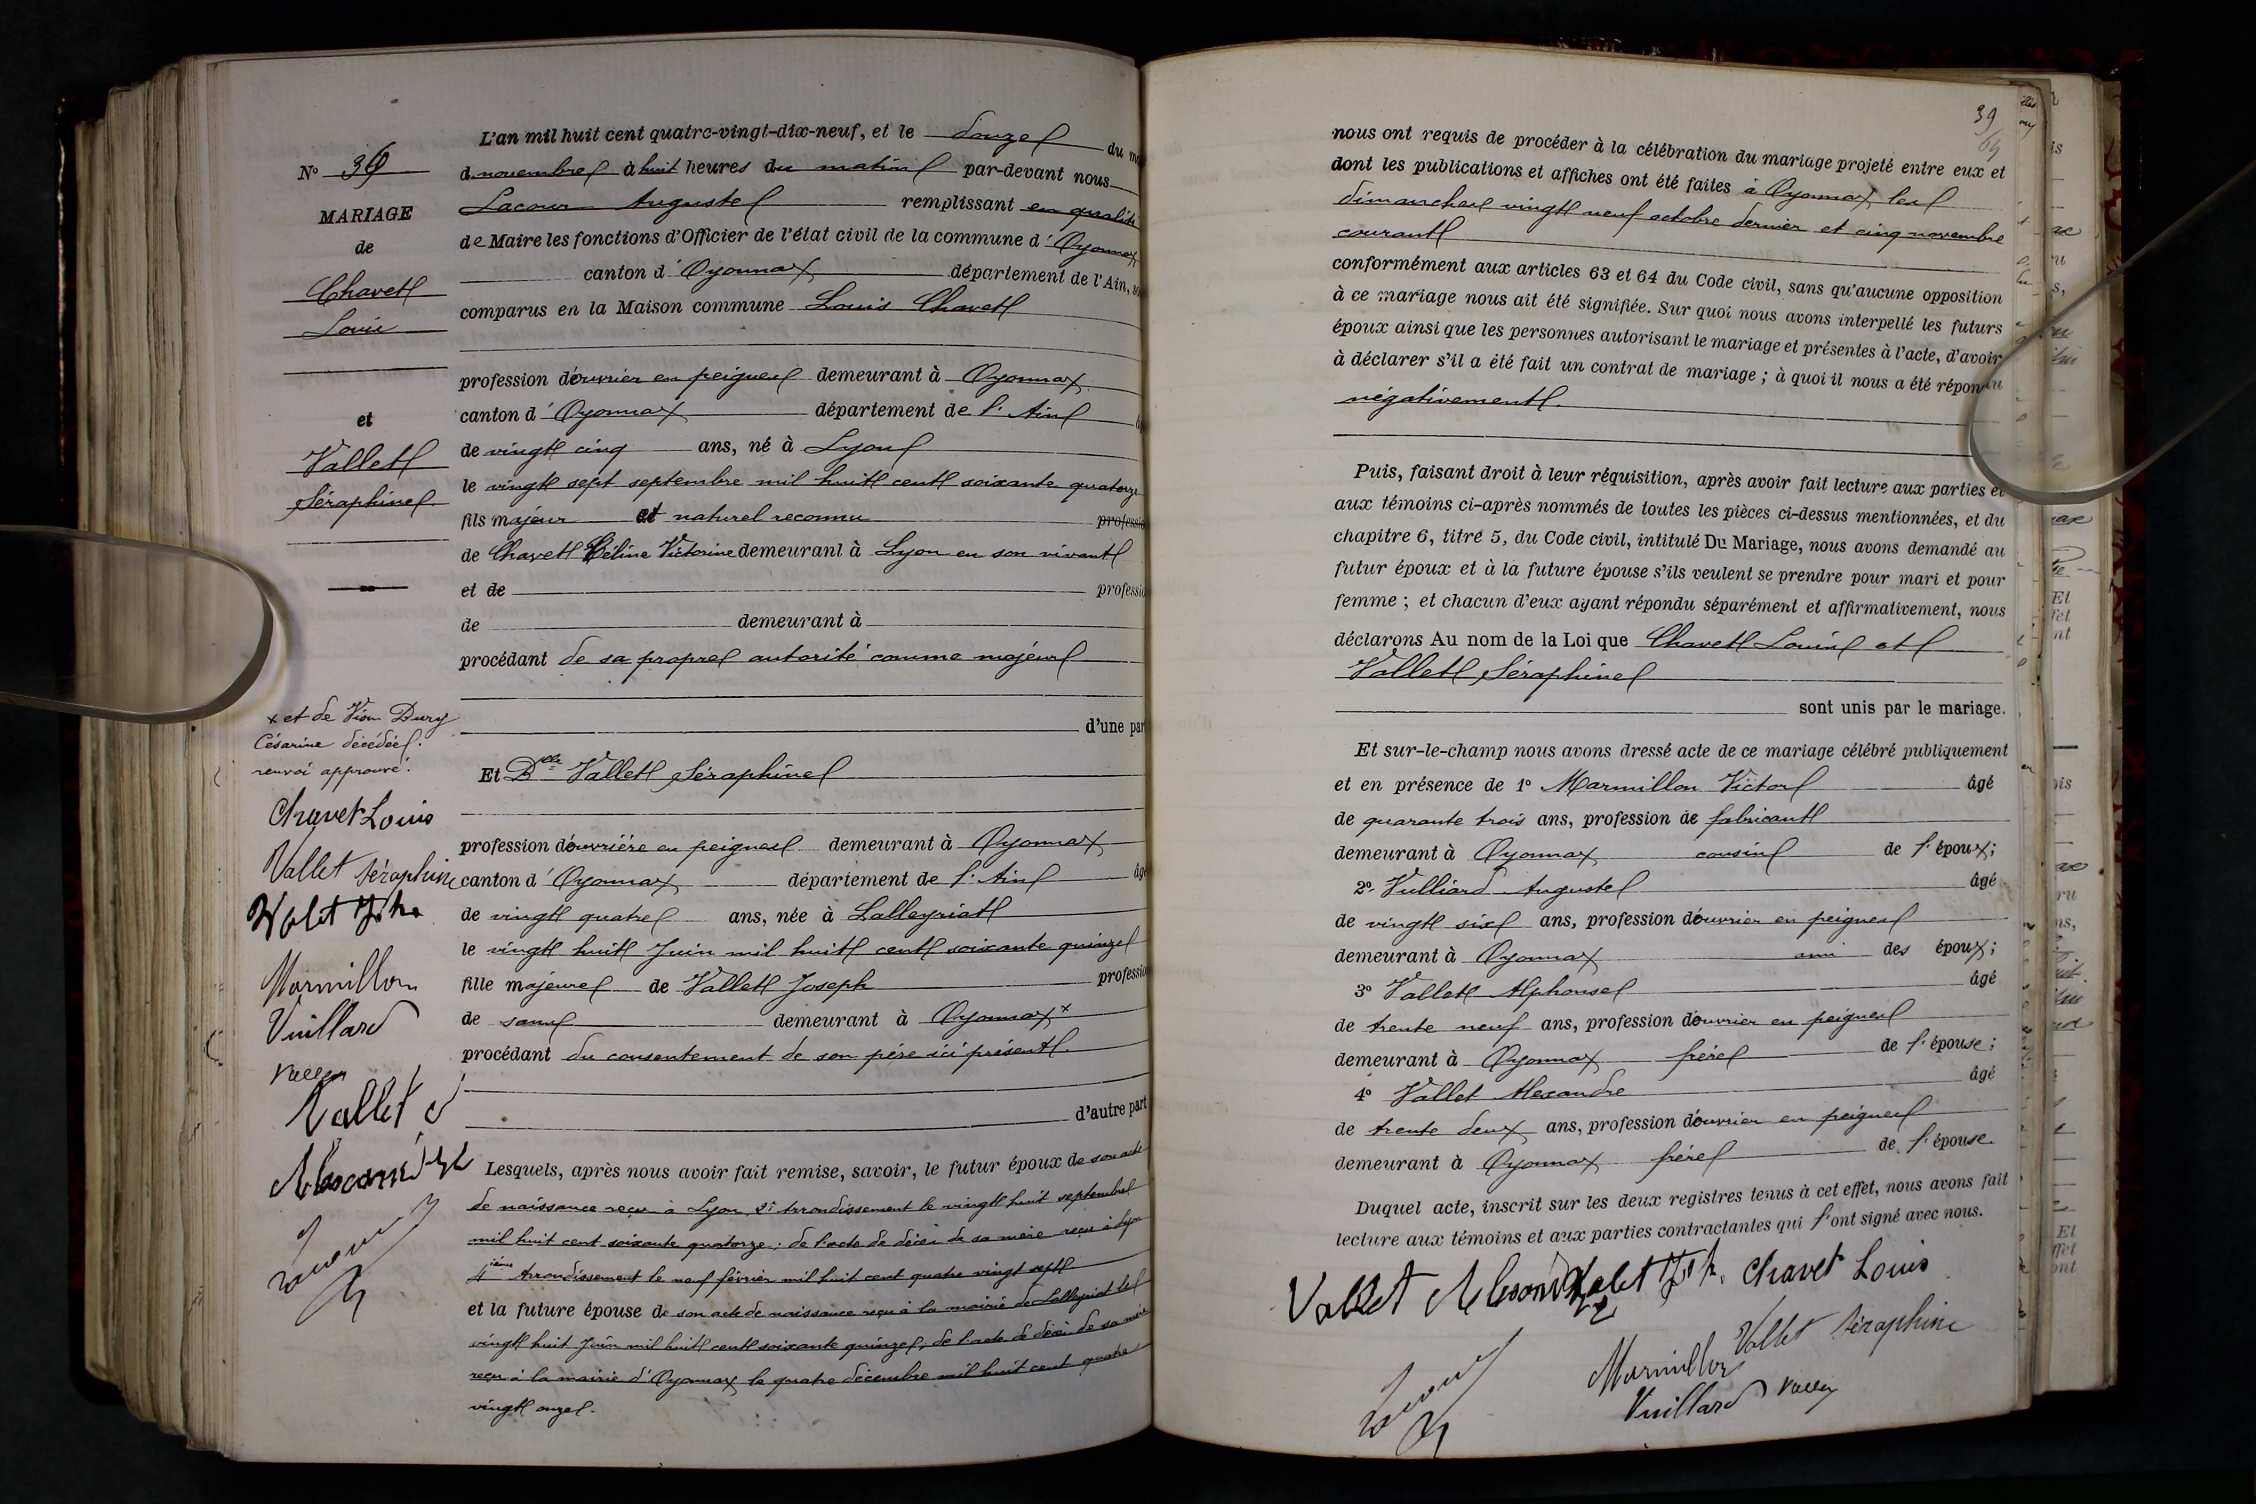 L'an mil huit cent quatre-vingt-dix-neuf, et le douze du
N° 39
de novembre à huit heures du matin par-devant nous
MARIAGE
de
Chavet
Louis
et
Vallet
Séraphine
Lacour Auguste remplissant en qualité
de Maire les fonctions d'Officier de l'état civil de la commune d'Oyonnax
canton d'Oyonnax département de l'Ain,
comparus en la Maison commune Louis Chavet
profession d'ouvrier en peignes demeurant à Oyonnax
canton d'Oyonnax département de l'Ain
de vingt cinq ans, né à Lyon
le vingt sept septembre mil huit cent soixante quatorze
fils majeur et naturel reconnu
de Chavet Céline Victorine demeurant à Lyon en son vivant
et de professio
de demeurant à
procédant de sa propre autorité comme majeur
d'une par
Et Dlle Vallet Séraphine
profession d'ouvrière en peignes demeurant à Oyonnax
canton d'Oyonnax département de l'Ain âgé
de vingt quatre ans, née à Lalleyriat
le vingt huit Juin mil huit cent soixante quinze
fille majeure de Vallet Joseph professio
de sans demeurant à Oyonnax x
procédant du consentement de son père ici présent.
d'autre part
x et de Vion Dury
Césarine décédée.
renvoi approuvé.
Chavet Louis
Vallet Séraphine
Marmillon
Vuillard
Vallet
Lesquels, après nous avoir fait remise, savoir, le futur époux de son acte
de naissance reçu à Lyon 2e Arrondissement le vingt huit septembre
mil huit cent soixante quatorze; de l'acte de décès de sa mère reçu à Lyon
4ième Arrondissement le neuf février mil huit cent quatre vingt sept
et la future épouse de son acte de naissance reçu à la mairie de Lalleyriat le
vingt huit Juin mil huit cent soixante quinze; de l'acte de décès de sa mère
reçu à la mairie d'Oyonnax le quatre décembre mil huit cent quatre
vingt onze.
39
nous ont requis de procéder à la célébration du mariage projeté entre eux et
dont les publications et affiches ont été faites à Oyonnax les
dimanches vingt neuf octobre dernier et cinq novembre
courant
conformément aux articles 63 et 64 du Code civil, sans qu'aucune opposition
à ce mariage nous ait été signifiée. Sur quoi nous avons interpellé les futurs
époux ainsi que les personnes autorisant le mariage et présentes à l'acte, d'avoir
à déclarer s'il a été fait un contrat de mariage ; à quoi il nous a été répondu
négativement.
Puis, faisant droit à leur réquisition, après avoir fait lecture aux parties et
aux témoins ci-après nommés de toutes les pièces ci-dessus mentionnées, et du
chapitre 6, titre 5, du Code civil, intitulé Du Mariage, nous avons demandé au
futur époux et à la future épouse s'ils veulent se prendre pour mari et pour
femme ; et chacun d'eux ayant répondu séparément et affirmativement, nous
déclarons Au nom de la Loi que Chavet Louis et
Vallet Séraphine
sont unis par le mariage.
Et sur-le-champ nous avons dressé acte de ce mariage célébré publiquement
et en présence de 1° Marmillon Victor âgé
de quarante trois ans, profession de fabricant
demeurant à Oyonnax cousin de l'époux;
2° Vulliard Auguste âgé
de vingt six ans, profession d'ouvrier en peignes
demeurant à Oyonnax ami des époux;
3° Vallet Alphonse âgé
de trente neuf ans, profession d'ouvrier en peignes
demeurant à Oyonnax frère de l'épouse;
4° Vallet Alexandre âgé
de trente deux ans, profession d'ouvrier en peignes
demeurant à Oyonnax frère de l'épouse.
Duquel acte, inscrit sur les deux registres tenus à cet effet, nous avons fait
lecture aux témoins et aux parties contractantes qui l'ont signé avec nous.
Chavet Louis
Vallet Séraphine
Marmillon
Vuillard